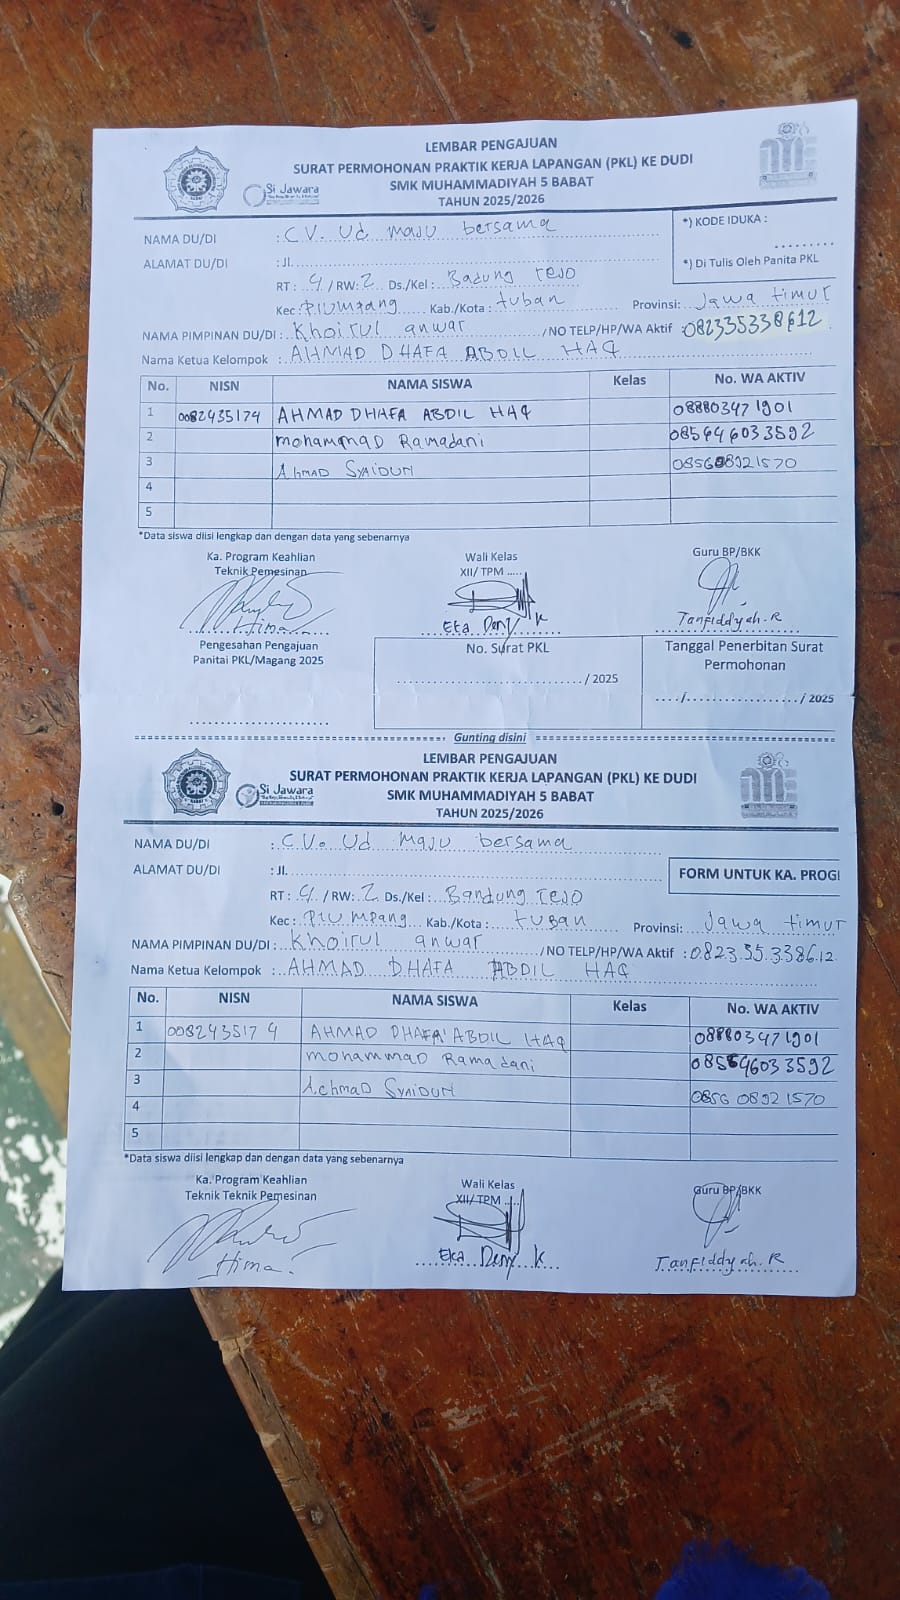 LEMBAR PENGAJUAN
SURAT PERMOHONAN PRAKTIK KERJA LAPANGAN (PKL) KE DUDI
SMK MUHAMMADIYAH 5 BABAT
TAHUN 2025/2026
Si Jawara
NAMA DU/DI : C.V. Ud maju bersama
*) KODE IDUKA :
ALAMAT DU/DI : Jl.
*) Di Tulis Oleh Panita PKL
RT : 4 / RW: 2 Ds./Kel : Badung rejo
Kec : Plumpang Kab./Kota : tuban Provinsi: Jawa timur
NAMA PIMPINAN DU/DI : Khoirul anwar /NO TELP/HP/WA Aktif : 082335338612
Nama Ketua Kelompok : AHMAD DHAFA ABDIL HAQ
No. NISN NAMA SISWA Kelas No. WA AKTIV
1 0082435174 AHMAD DHAFA ABDIL HAQ 088803471901
2 mohammad Ramadani 085646033592
3 Ahmad SYAIDUN 085608921570
4
5
*Data siswa diisi lengkap dan dengan data yang sebenarnya
Ka. Program Keahlian Wali Kelas Guru BP/BKK
Teknik Pemesinan XII/ TPM .....
Hima Eka Deny K Tanfiddyah.R
Pengesahan Pengajuan No. Surat PKL Tanggal Penerbitan Surat
Panitai PKL/Magang 2025 Permohonan
/ 2025 ..../..................../ 2025
Gunting disini
LEMBAR PENGAJUAN
SURAT PERMOHONAN PRAKTIK KERJA LAPANGAN (PKL) KE DUDI
SMK MUHAMMADIYAH 5 BABAT
TAHUN 2025/2026
Si Jawara
NAMA DU/DI : C.V. Ud maju bersama
ALAMAT DU/DI : Jl.
FORM UNTUK KA. PROGI
RT : 4 / RW: 2 Ds./Kel : Bandung rejo
Kec : Plumpang Kab./Kota : tuban Provinsi: Jawa timur
NAMA PIMPINAN DU/DI : Khoirul anwar /NO TELP/HP/WA Aktif : 0823.35.3386.12
Nama Ketua Kelompok : AHMAD DHAFA ABDIL HAQ
No. NISN NAMA SISWA Kelas No. WA AKTIV
1 0082435174 AHMAD DHAFA ABDIL HAQ 088803471901
2 mohammad Ramadani 085646033592
3 Achmad SYAIDUN 0856 0892 1570
4
5
*Data siswa diisi lengkap dan dengan data yang sebenarnya
Ka. Program Keahlian Wali Kelas Guru BP/BKK
Teknik Teknik Pemesinan XII/ TPM .....
Hima. Eka Deny K Tanfiddyah.R